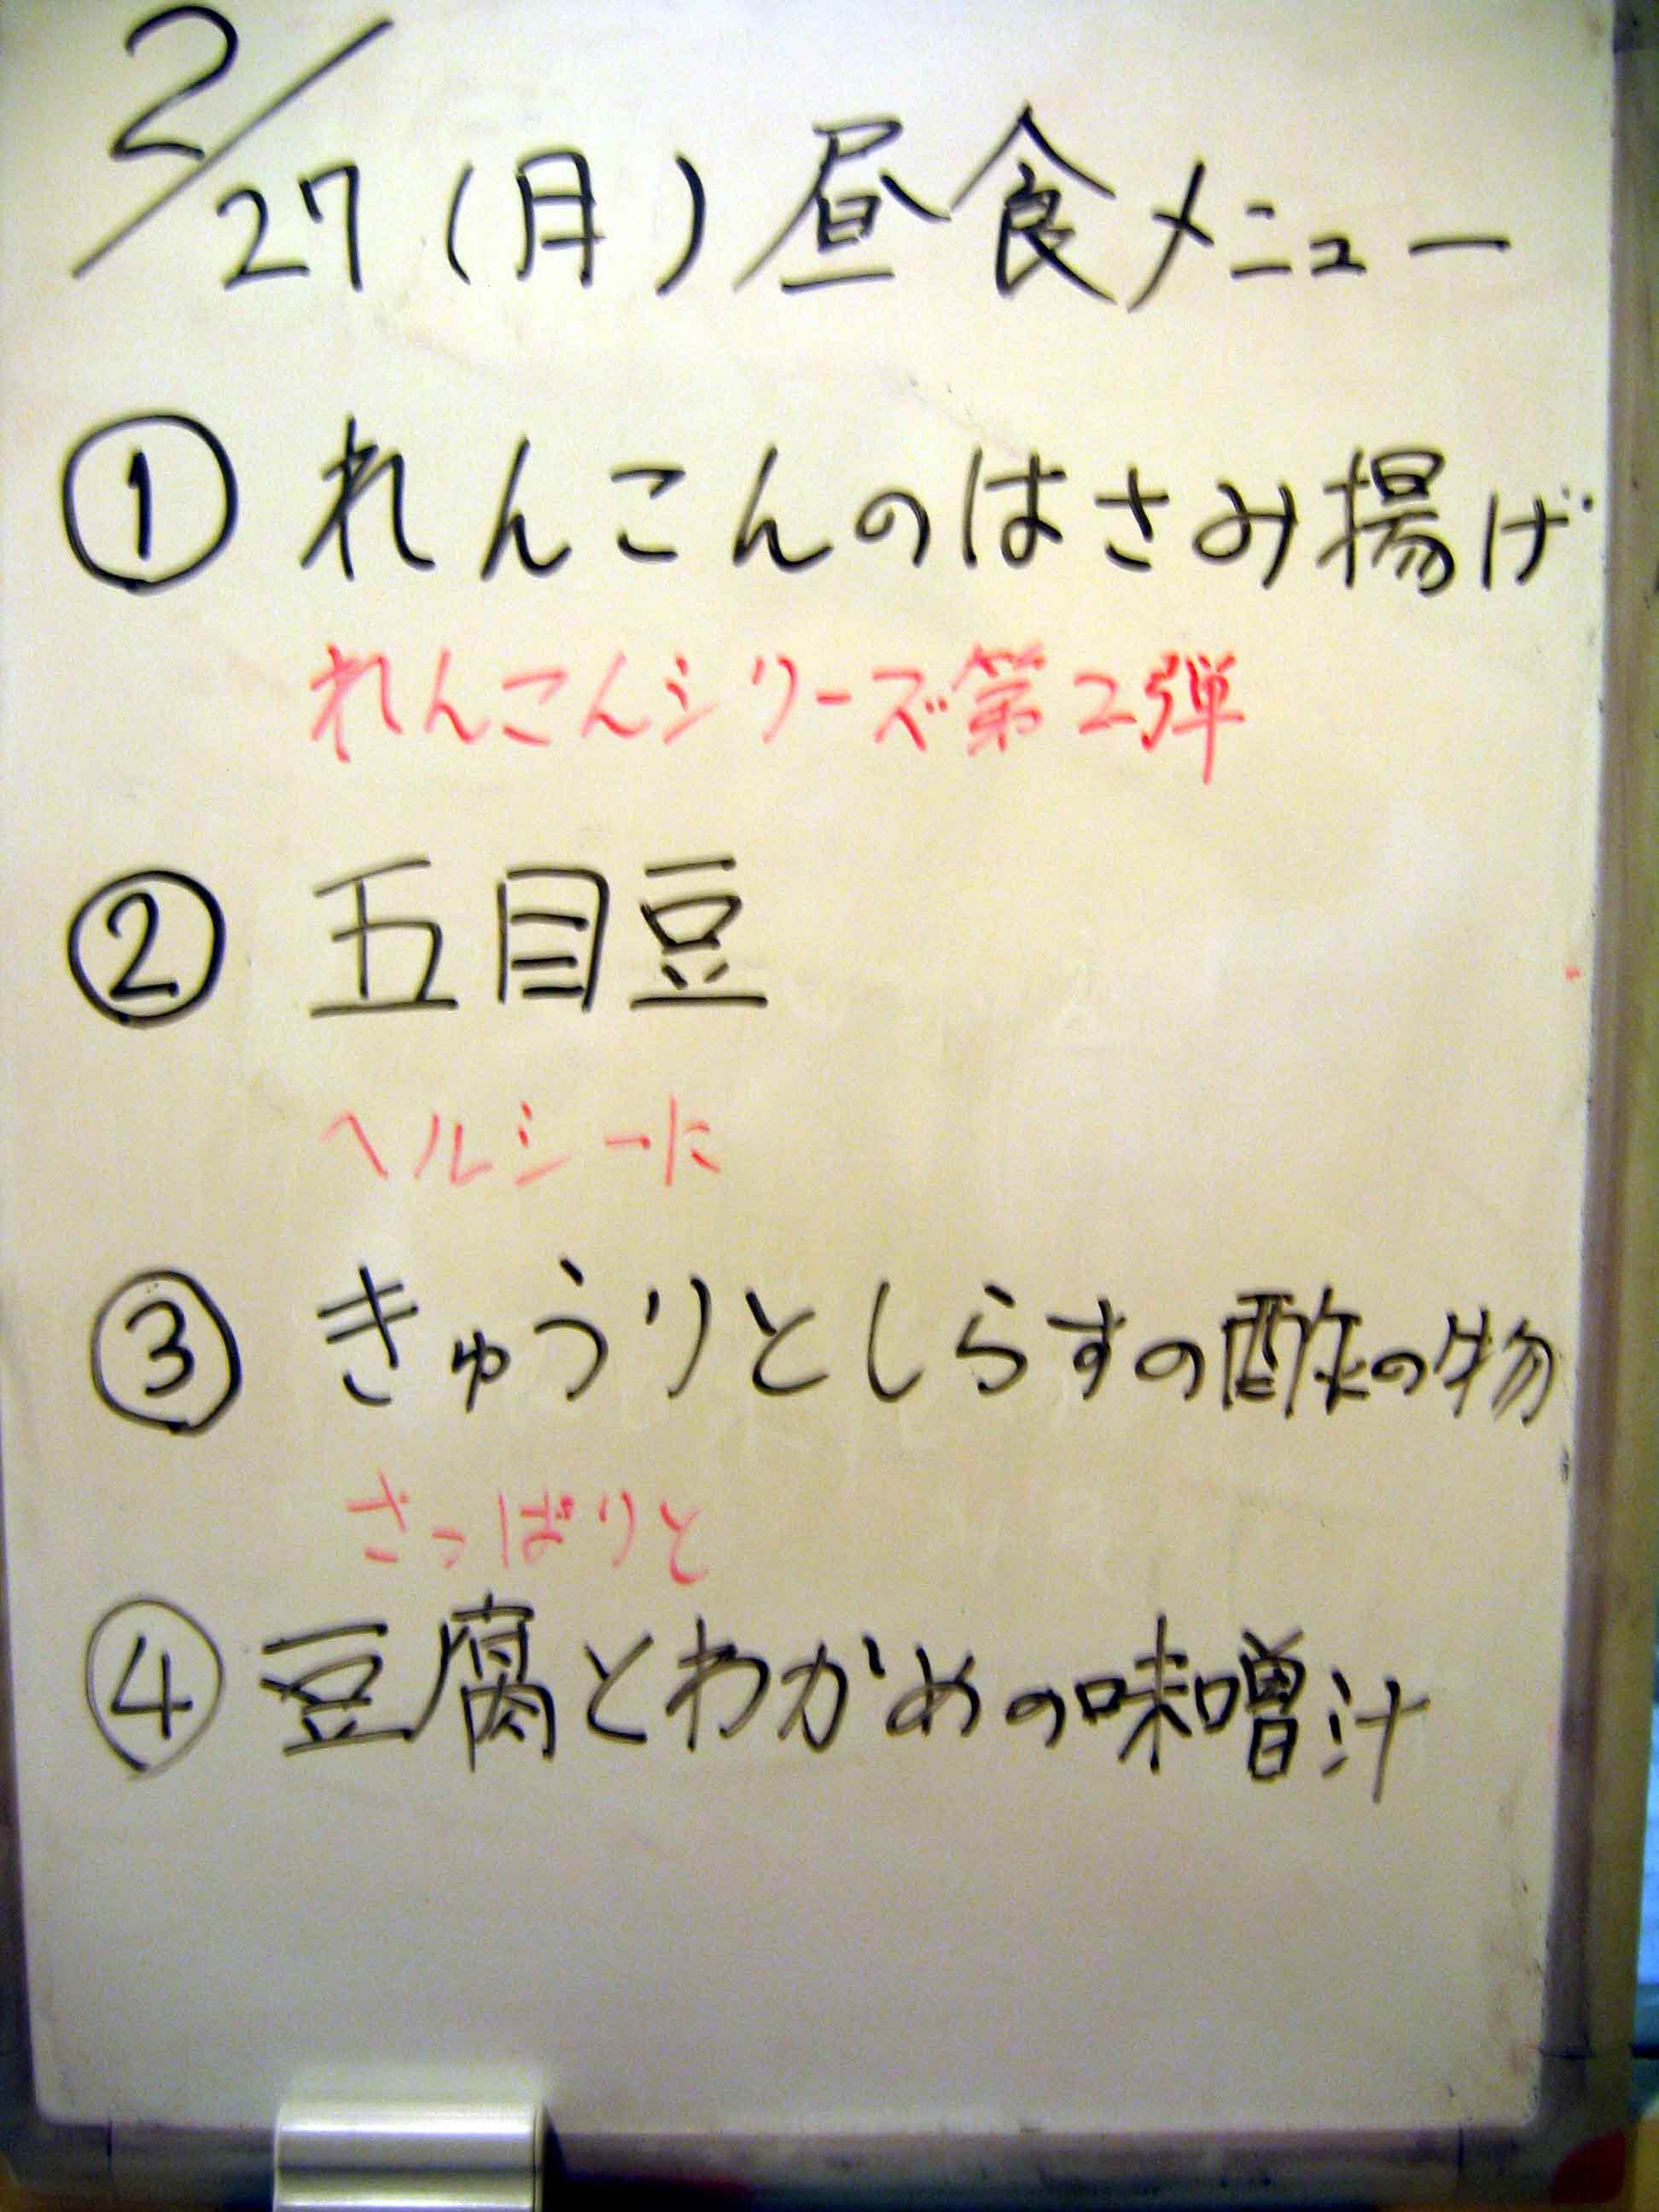 2/27(月)昼食メニュー
① れんこんのはさみ揚げ
れんこんシリーズ第2弾
② 五目豆
ヘルシーに
③ きゅうりとしらすの酢の物
さっぱりと
④ 豆腐とわかめの味噌汁